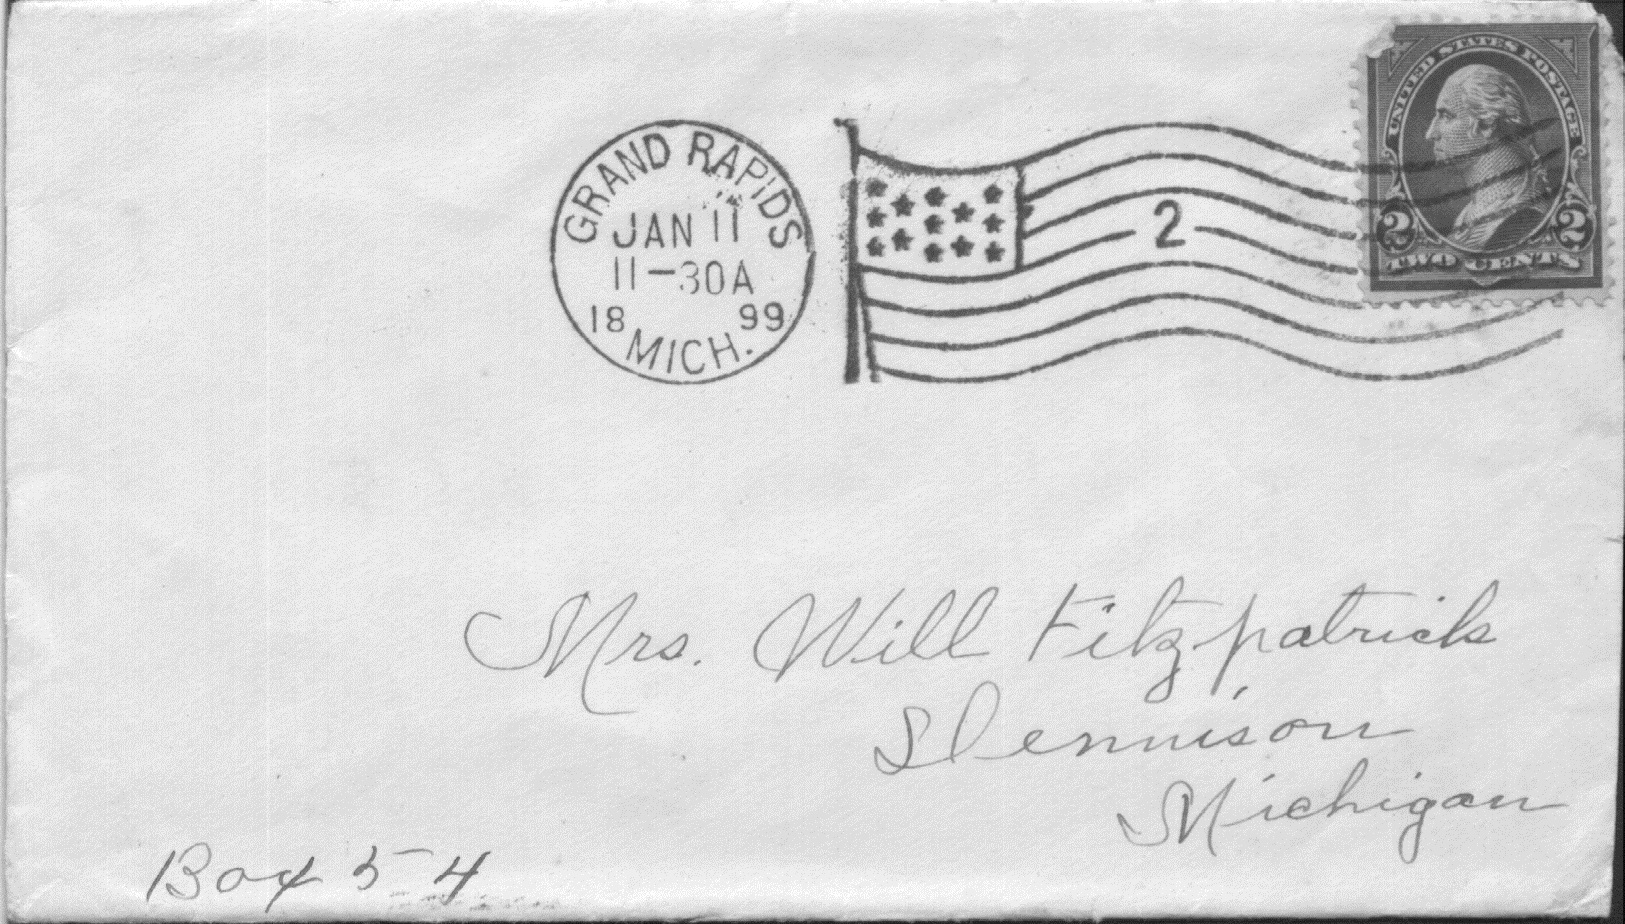 UNITED STATES POSTAGE
2 2
TWO CENTS
GRAND RAPIDS
JAN 11
11-30A
18 99
MICH.
2
Mrs. Will Fitzpatrick
Dennison
Michigan
Box 54